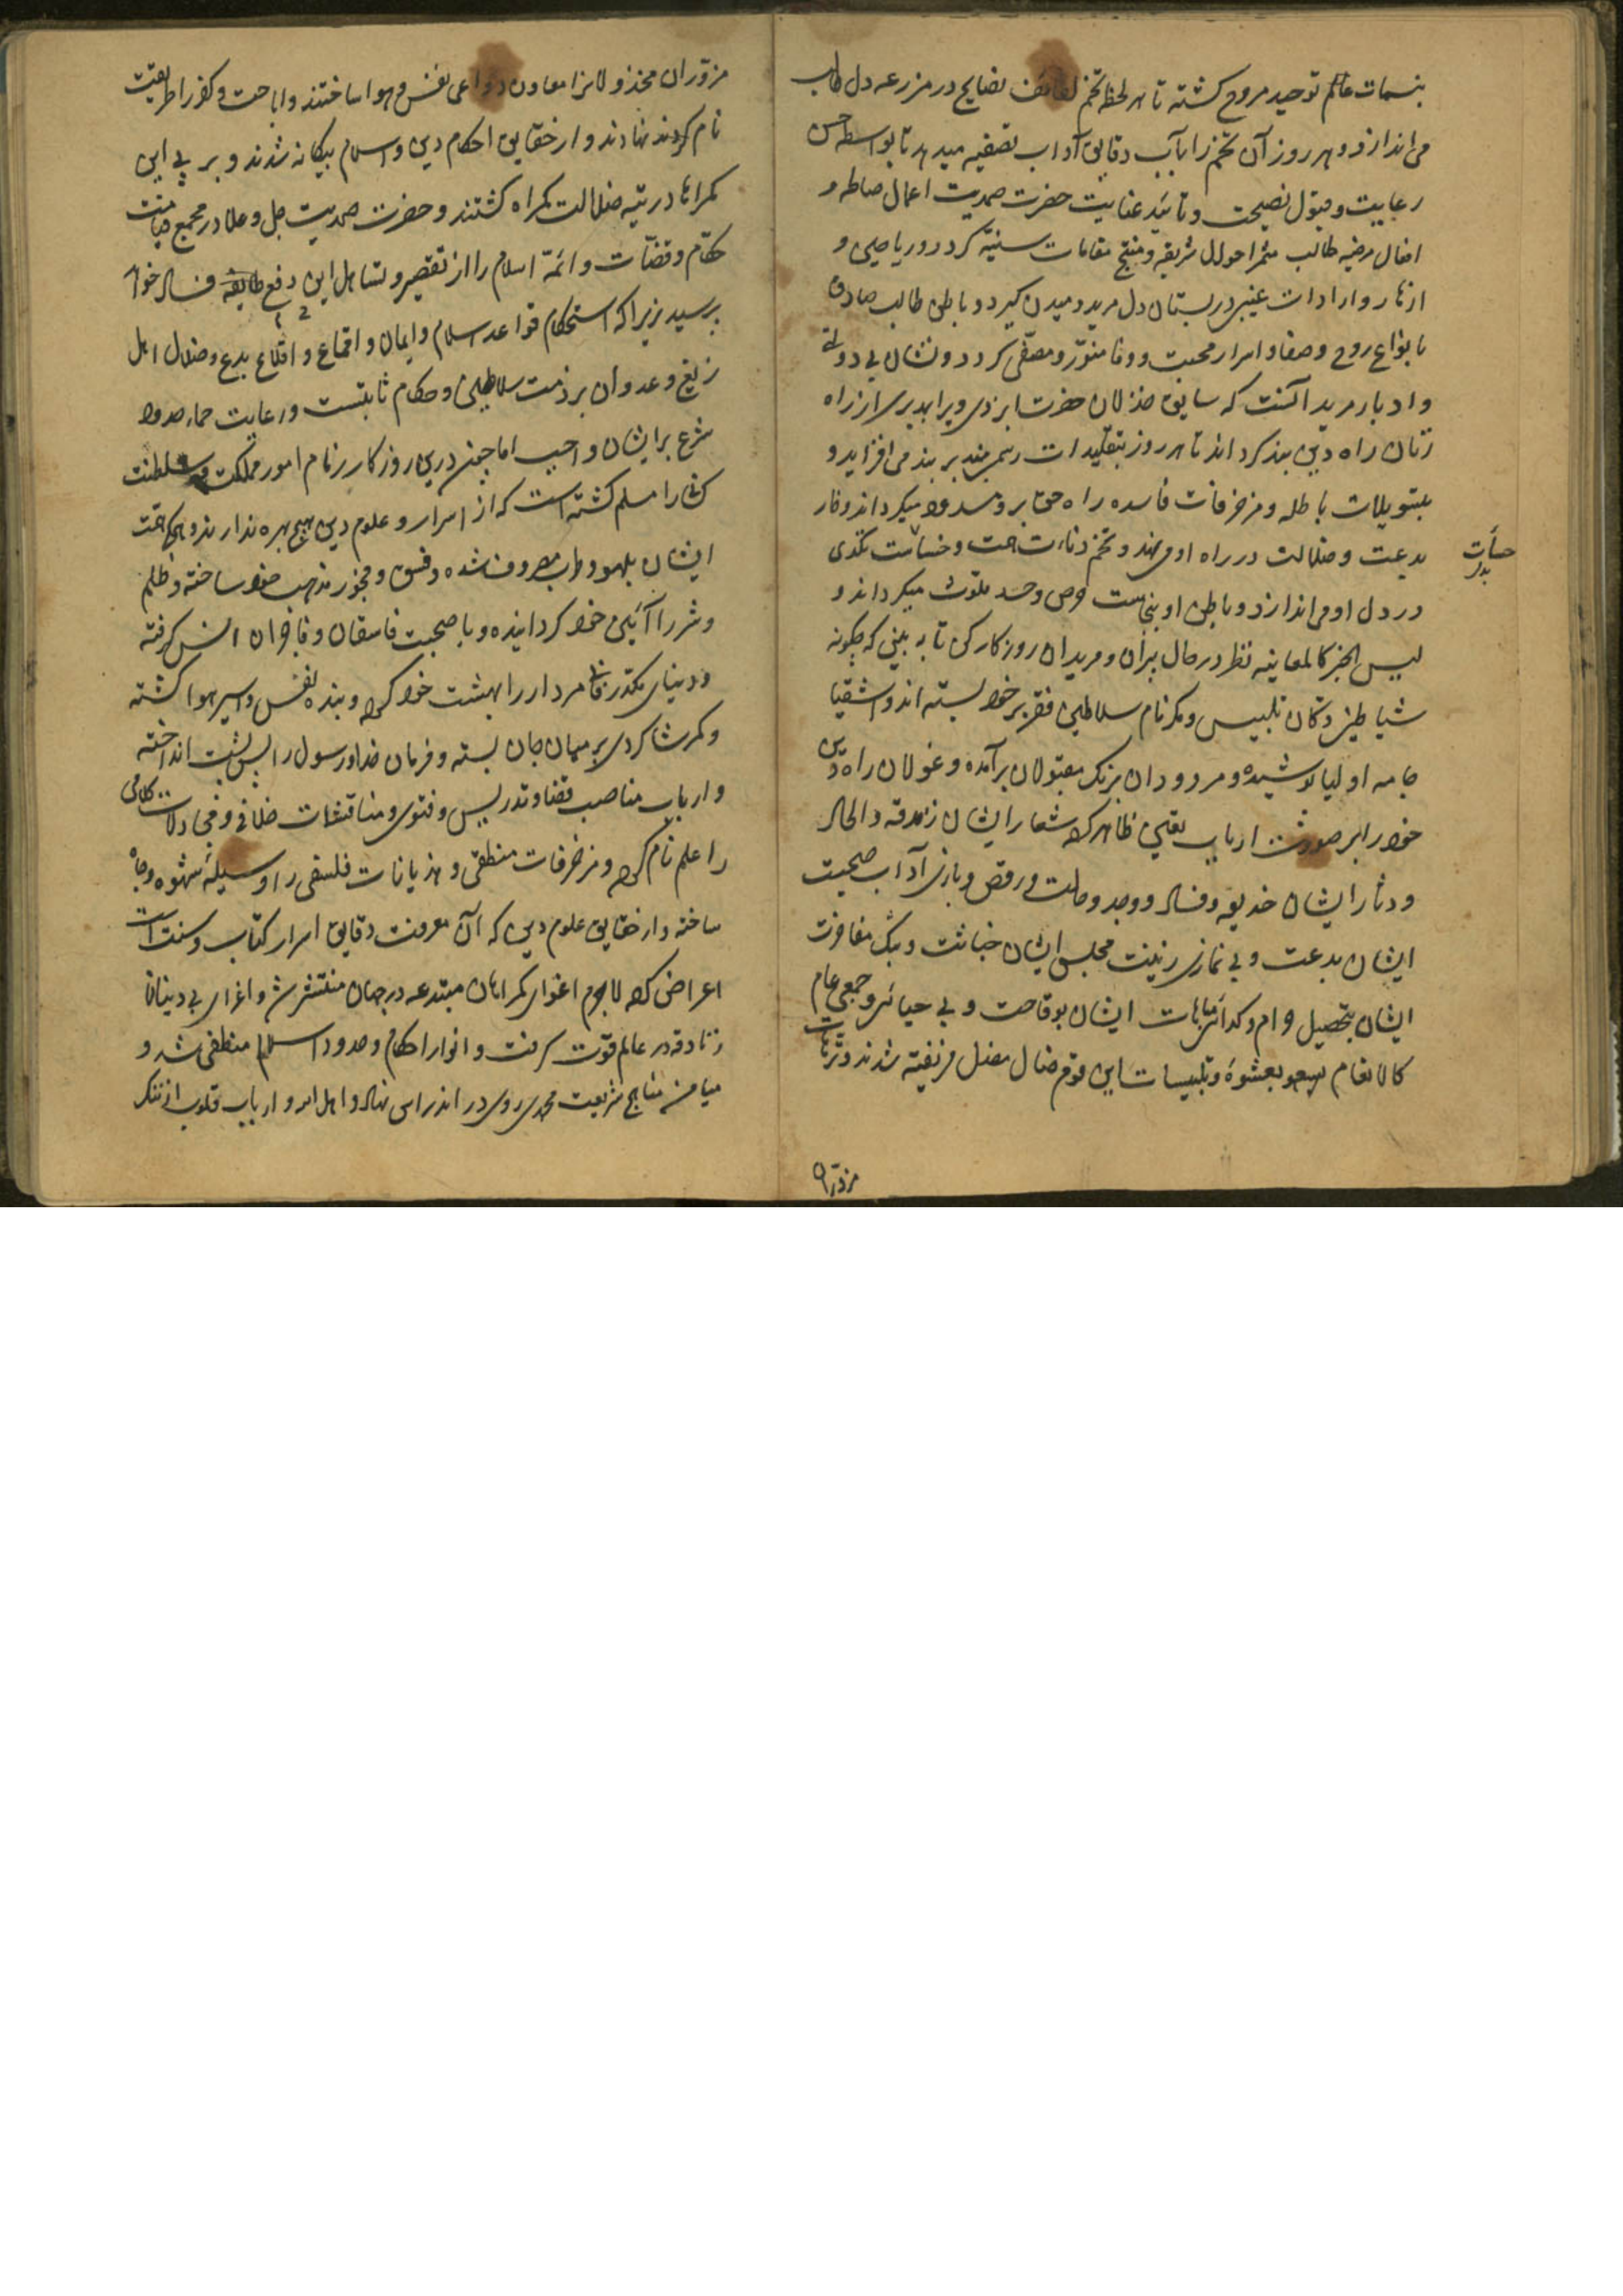 بنسمات عالم توحید مروح کشته تا هر لحظه تخم لطائف نصایح در مزرعه دل طالب
می اندازد و هر روز آن تخم را بآب دقایق آداب تصفیه میدهد تا بواسطه حسن
رعایت و قبول نصیحت و تایید عنایت حضرت صمدیت اعمال صالحه و
افعال مرضیه طالب مثمر احوال شریفه و منتج مقامات سنیه کردد و ریاحین و
ازهار واردات غیبی در بستان دل مرید دمیدن کیرد و باطن طالب صادق
بانواع روح و صفا و اسرار محبت و وفا منور و مصفی کردد و نشان بی دولتی
و ادبار مرید آنست که سابق خذلان حضرت ایزدی ویرا بدیری از راه
زنان راه دین بند کرداند تا هر روز بتقلیدات رسمی بند بر بند می افزاید و
بتسویلات باطله و مزخرفات فاسده راه حق برو مسدود میکرداند و خار
بدعت و ضلالت در راه او می نهد و تخم دناءت همت و خساست تکدی
در دل او می اندازد و باطن او بنجاست حرص و حسد ملوث میکرداند و
لیس الخبر کالمعاینه نظر در حال پیران و مریدان روزکار کن تا به بینی که چکونه
شیاطین دکان تلبیس و مکر نام سلاطین فقر بر خود بسته اند و اشقیا
جامه اولیا پوشیده و مردودان برنک مقبولان برآمده و غولان راه دین
خود را بر صورت ارباب یقین ظاهر کرده شعار ایشان زندقه و الحاد
و دثار ایشان خدیعه و فساد و وجد و حالت و رقص و بازی آداب صحبت
ایشان بدعت و بی نمازی زینت مجلس ایشان خباثت و بنک مفاخرت
ایشان بتحصیل حرام و کدائی مباهات ایشان بوقاحت و بی حیائی و جمعی عام
کالانعام بعشوه و تلبیسات این قوم ضال مضل فریفته شدند و ترهات
مزوران
مزوران مخذول را معاون دواعی نفس و هوا ساختند و اباحت و کفر را طریقت
نام کردند نهادند و از حقایق احکام دین و اسلام بیکانه شدند و بر پی این
کمراهان در تیه ضلالت کمراه کشتند و حضرت صمدیت جل و علا در مجمع قیامت
حکام و قضات و ائمه اسلام را از تقصیر و تساهل این دفع طایفه فساد خواهد
پرسید زیرا که استحکام قواعد اسلام و ایمان و اقماع و اقلاع بدع و ضلال اهل
زیغ و عدوان بر ذمت سلاطین و حکام ثابتست و رعایت حماء حدود
شرع بر ایشان واجب اما چون درین روزکار زمام امور مملکت و سلطنت
کسانی را مسلم کشته است که از اسرار و علوم دین هیچ بهره ندارند و همکی همت
ایشان بلهو و طرب مصروف شده و فسق و فجور مذهب خود ساخته و ظلم
و شر را آئین خود کردانیده و با صحبت فاسقان و فاجران انس کرفته
و دنیای مکدر فانی مردار را بهشت خود کرده و بنده نفس و اسیر هوا کشته
و کمر شاکردی بر میان جان بسته و فرمان خدا و رسول را پس پشت انداخته
و ارباب مناصب قضا و تدریس و فتوی و مناقشات خلافی و مجادلات کلامی
را علم نام کرده و مزخرفات منطقی و هذیانات فلسفی را وسیله شهوه و جاه
ساخته و از حقایق علوم دین که آن معرفت دقایق اسرار کتاب و سنت است
اعراض کرده لاجرم اغوای کمراهان مبتدعه در جهان منتشر شد و اغرای بی دینان
زنادقه در عالم قوت کرفت و انوار احکام و حدود اسلام منطفی شد و
میامن مناهج شریعت محمدی روی در اندراس نهاد و اهل الله و ارباب قلوب از ننک